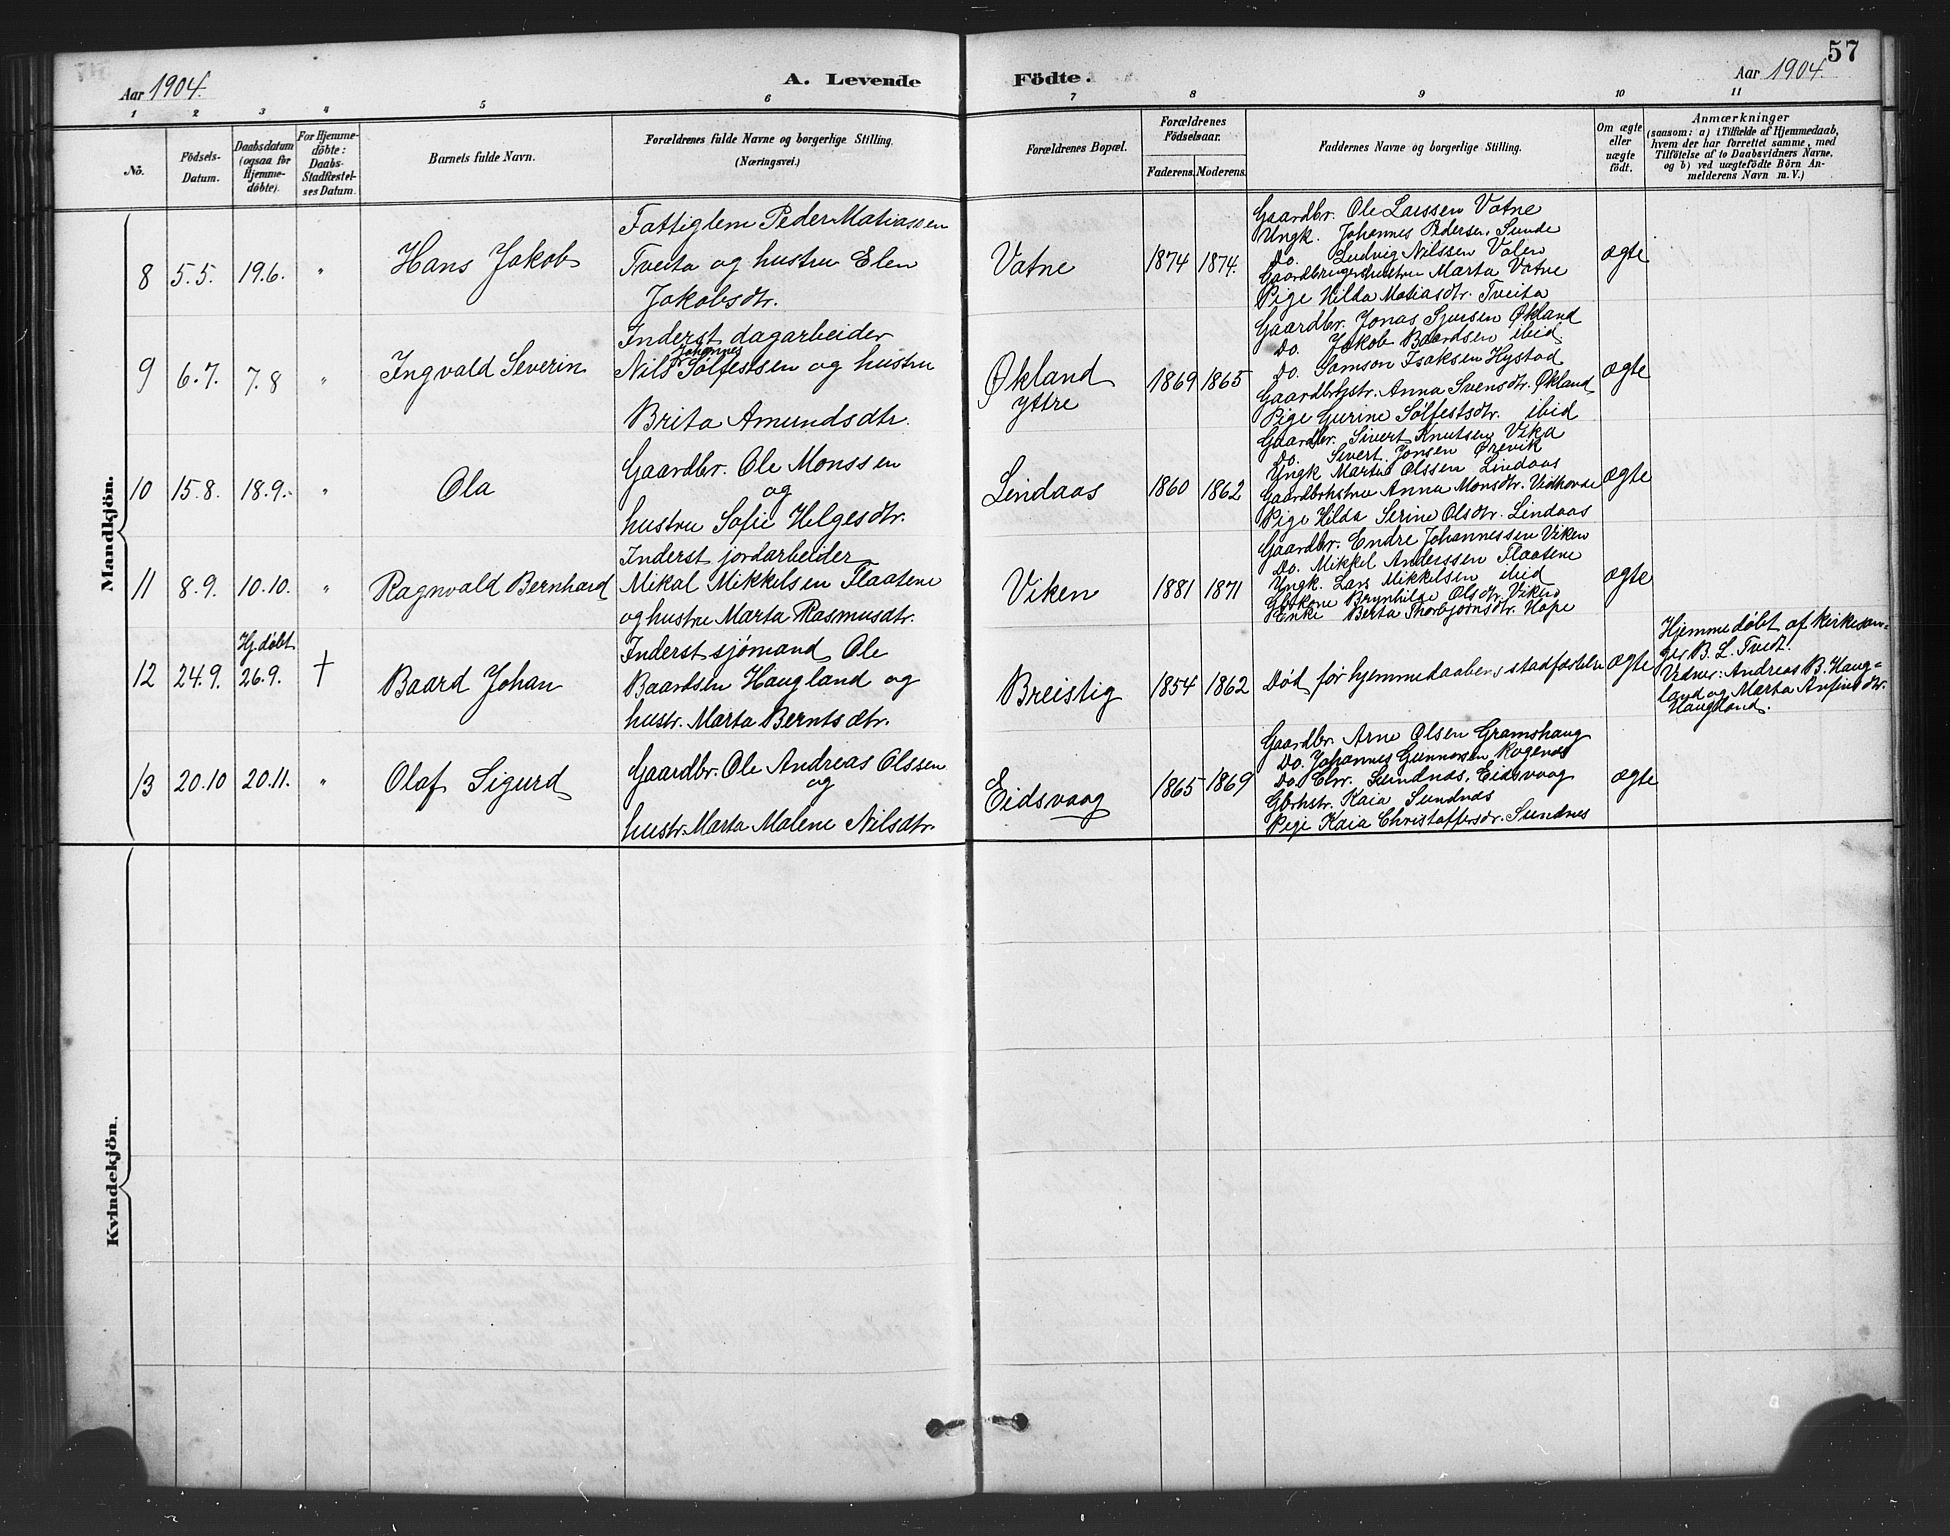 Aar 1904.
A. Levende
Födte.
Aar 1904.
57
1 2 3 4 5 6 7 8 9 10 11
No.
Födsels-Datum.
Daabsdatum (ogsaa for Hjemme-döbte).
For Hjemme-döbte: Daabs-Stadfæstel-ses Datum.
Barnets fulde Navn.
Forældrenes fulde Navne og borgerlige Stilling.
(Næringsvei.)
Forældrenes Bopæl.
Forældrenes Födselsaar.
Faderens. Moderens.
Faddernes Navne og borgerlige Stilling.
Om ægte eller uægte födt.
Anmærkninger
(saasom: a) i Tilfælde af Hjemmedaab,
hvem der har forrettet samme, med
Tilföielse af to Daabsvidners Navne,
og b) ved uægtefödte Börn An-
melderens Navn m. V.)
Mandkjön.
8 5.5. 19.6. " Hans Jakob
Fattiglem Peder Matiassen
Tveita og hustru Elen
Jakobsdtr.
Vatne 1874 1874.
Gaardbr. Ole Larssen Vatne
Ungk. Johannes Pedersen, Sunde
Do. Ludvig Nilssen Valen
Gaardbrugerhustru Marta Vatne
Pige Hilda Matiasdtr. Tveita
ægte
9 6.7. 7.8 " Ingvald Severin
Inderst dagarbeider
Johannes
Nils Sølfestsen og hustru
Brita Amundsdtr.
Økland
Yttre
1869 1865
Gaardbr. Jonas Sjursen Økland
Do. Jakob Baardsen ibid
Do. Samson Isaksen Hystad
Gaardbrhstr. Anna Svensdtr. Økland
Pige Gurine Sølfestsdtr. ibid
ægte
10 15.8. 18.9. " Ola
Gaardbr. Ole Monssen
og
hustru Sofie Helgesdtr.
Lindaas 1860 1862
Gaardbr. Sivert Knutsen Vika
Do. Sivert Jonsen Ørevik
Ungk Martin Olssen Lindaas
Gaardbrhstru Anna Monsdtr.
Pige Hilda Serine Olsdtr. Lindaas
ægte
11 8.9. 10.10. " Ragnvald Bernhard
Inderst jordarbeider
Mikal Mikkelsen Flaatene
og hustru Marta Rasmusdtr.
Viken 1881 1871
Gaardbr. Endre Johannessen Viken
Do. Mikkel Anderssen Flaatene
Ungk. Lars Mikkelsen ibid
Gbrkone Brynhilde Olsdtr. Viken
Enke Berta Thorbjørnsdtr. Hope
ægte
12 24.9.
Hj. døbt
26.9. † Baard Johan
Inderst sjømand Ole
Baardsen Haugland og
hustr. Marta Berntsdtr.
Breistig 1854 1862
Død før hjemmedaabens stadfæstelse
ægte
Hjemmedøbt af kirkesan-
ger B. L. Tvedt.
Vidner: Andreas B. Haug-
land og Marta Anfinsdtr.
Haugland.
13 20.10 20.11. " Olaf Sigurd
Gaardbr. Ole Andreas Olssen
og
hustr. Marta Malene Nilsdtr.
Eidsvaag 1865 1869
Gaardbr. Arne Olsen Gramshaug
Do. Johannes Gunnarsen Rogenæs
Do. Chr. Sundnæs, Eidsvaag
Gbrhstr. Kaia Sundnæs
Pige Kaia Christoffersdr. Sundnes
ægte
Kvindekjön.